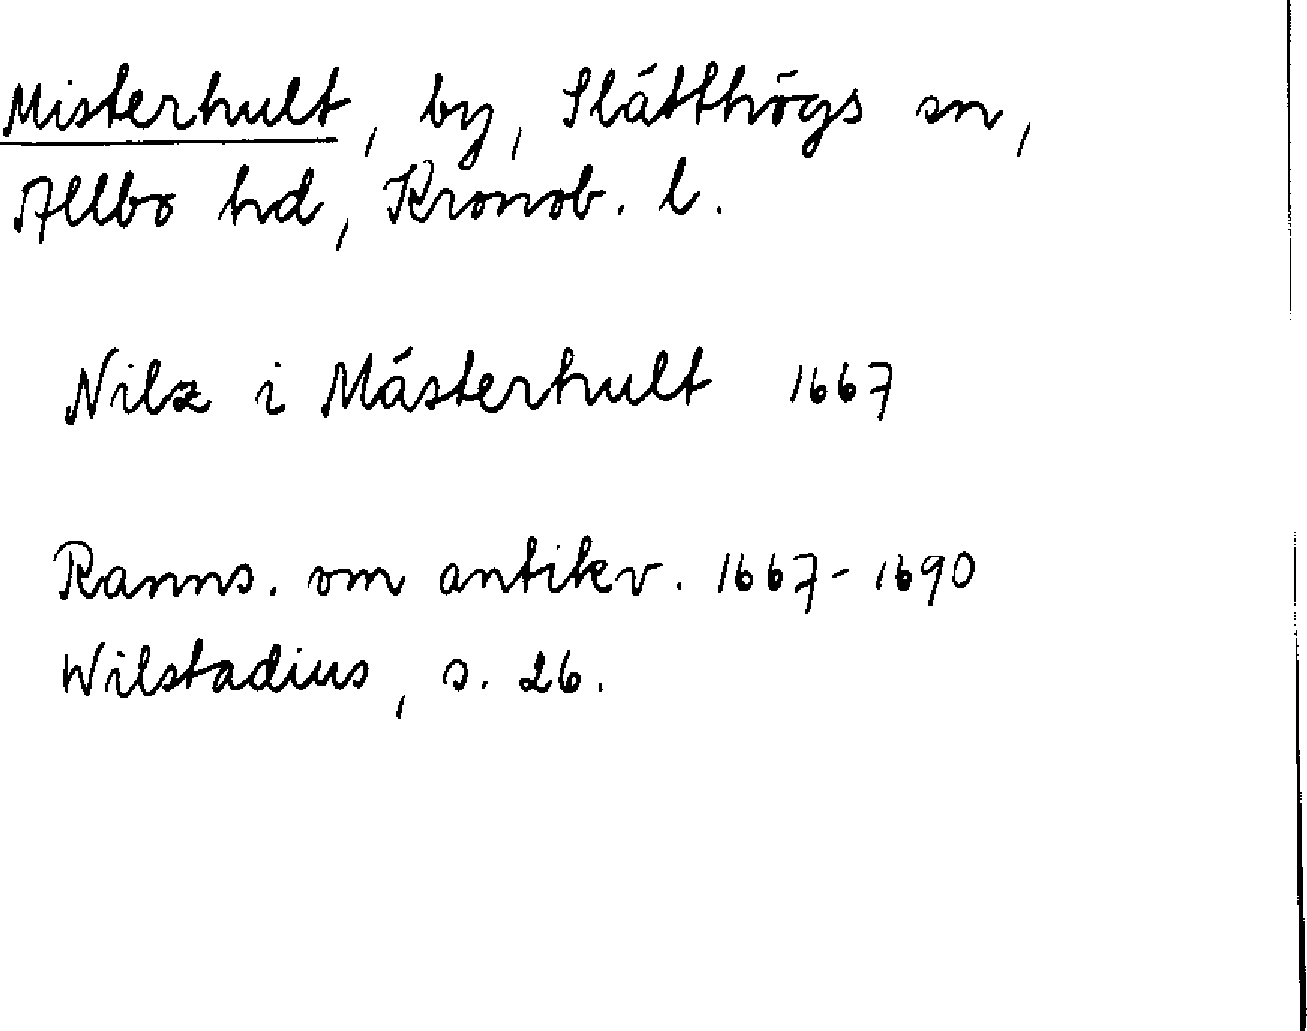 Misterhult, by, Slätthögs sn,
Allbo hd, Kronob. l.
Nilz i Mästerhult 1667
Ranns. om antikv. 1667-1690
Wilstadius, s. 26.